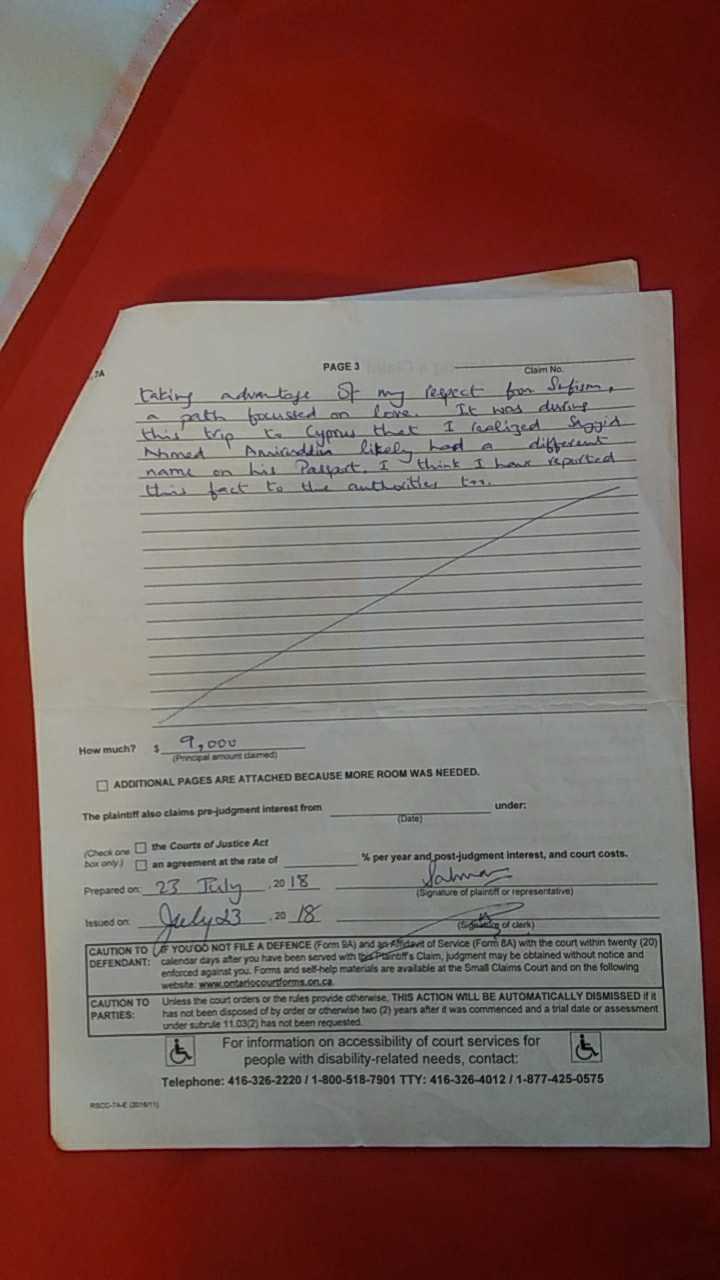 7A
PAGE 3
Claim No.
taking advantage of my respect for Sufism,
a path focussed on love. It was during
this trip to Cyprus that I realized Sayyid
Ahmed Amiruddin likely had a different
name on his Passport. I think I have reported
this fact to the authorities too.
How much? $ 9,000
(Principal amount claimed)
ADDITIONAL PAGES ARE ATTACHED BECAUSE MORE ROOM WAS NEEDED.
The plaintiff also claims pre-judgment interest from under:
(Date)
(Check one box only:) the Courts of Justice Act
an agreement at the rate of % per year and post-judgment interest, and court costs.
Prepared on: 23 July , 20 18 Salman
(Signature of plaintiff or representative)
Issued on: July 23 , 20 18
(Signature of clerk)
CAUTION TO DEFENDANT: IF YOU DO NOT FILE A DEFENCE (Form 9A) and an Affidavit of Service (Form 8A) with the court within twenty (20)
calendar days after you have been served with this Plaintiff's Claim, judgment may be obtained without notice and
enforced against you. Forms and self-help materials are available at the Small Claims Court and on the following
website: www.ontariocourtforms.on.ca.
CAUTION TO PARTIES: Unless the court orders or the rules provide otherwise, THIS ACTION WILL BE AUTOMATICALLY DISMISSED if it
has not been disposed of by order or otherwise two (2) years after it was commenced and a trial date or assessment
under subrule 11.03(2) has not been requested.
For information on accessibility of court services for
people with disability-related needs, contact:
Telephone: 416-326-2220 / 1-800-518-7901 TTY: 416-326-4012 / 1-877-425-0575
RSCC-7A-E (2016/11)